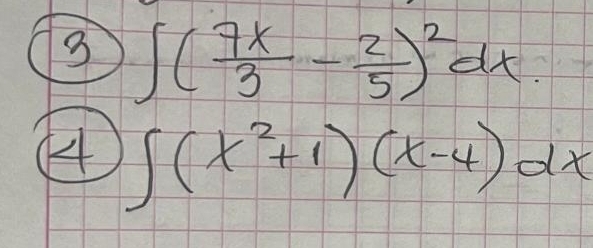 ③ ∫(7x/3 - 2/5)² dx.
④ ∫(x²+1)(x-4) dx